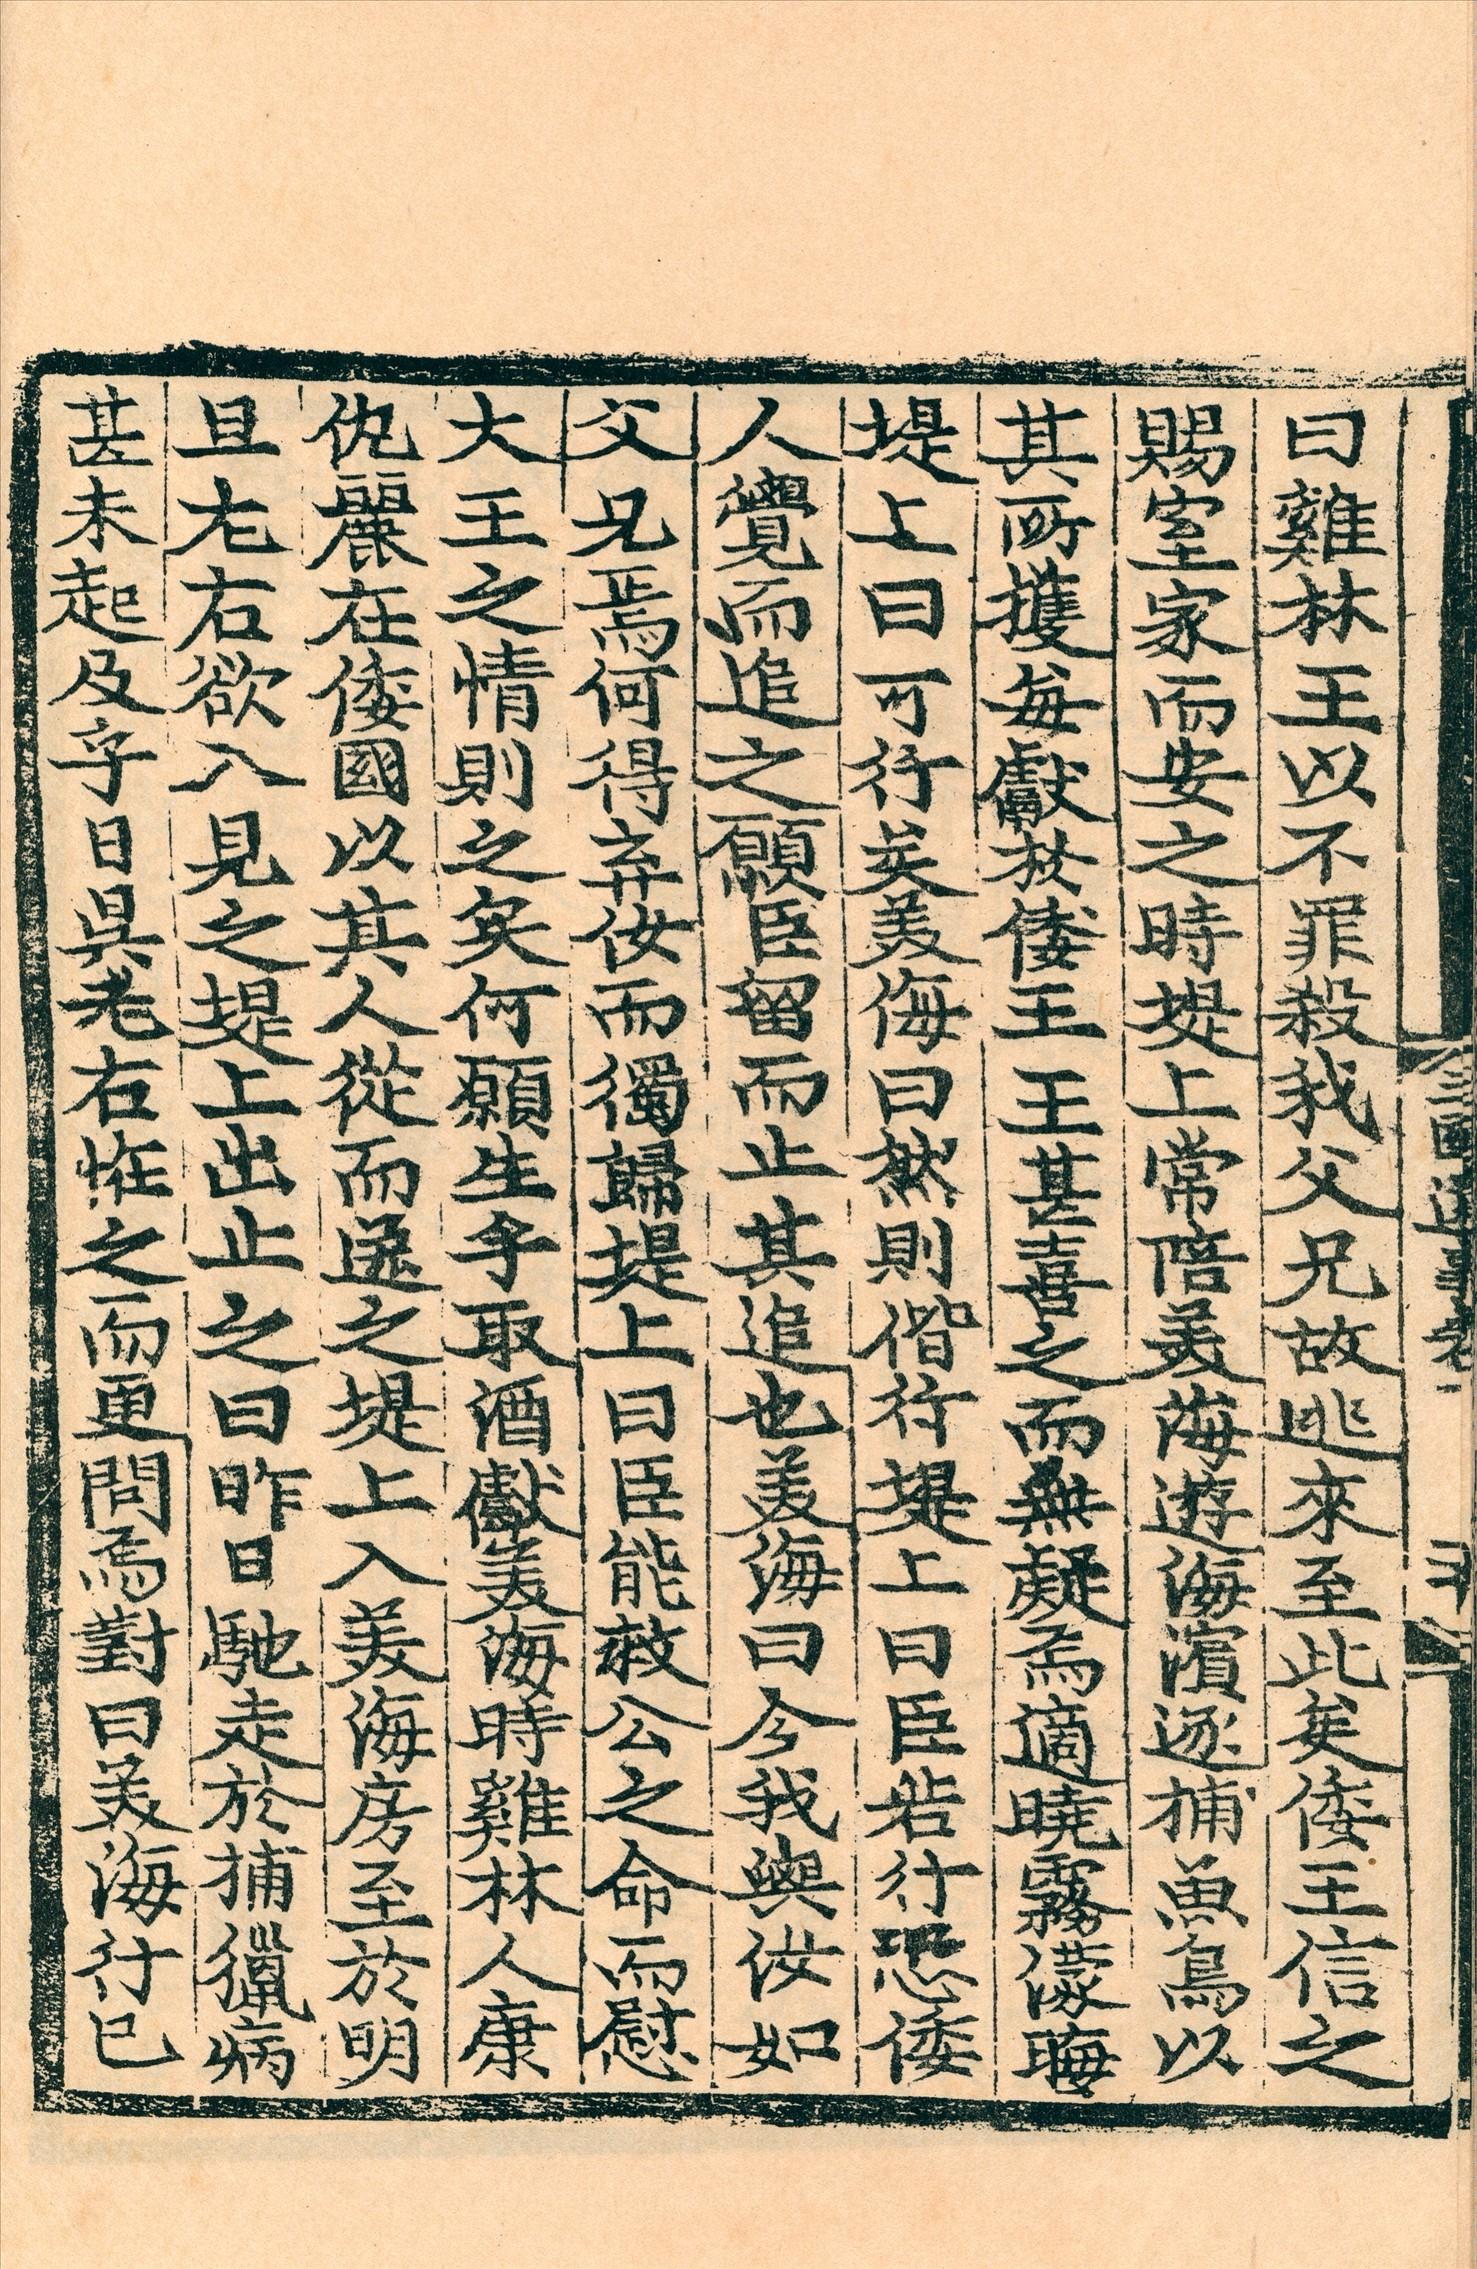 曰雞林王以不罪殺我父兄故逃來至此矣倭王信之
賜室家而安之時堤上常陪美海遊海濱逐捕魚鳥以
其所獲每獻於倭王王甚喜之而無疑焉適曉霧濛晦
堤上曰可行矣美海曰然則偕行堤上曰臣若行恐倭
人覺而追之願臣留而止其追也美海曰今我與汝如
父兄焉何得弃汝而獨歸堤上曰臣能救公之命而慰
大王之情則之矣何願生乎取酒獻美海時雞林人康
仇麗在倭國以其人從而送之堤上入美海房至於明
旦左右欲入見之堤上出止之曰昨日馳走於捕獵病
甚未起及乎日昃左右恠之而更問焉對曰美海行已
三國遺事卷一